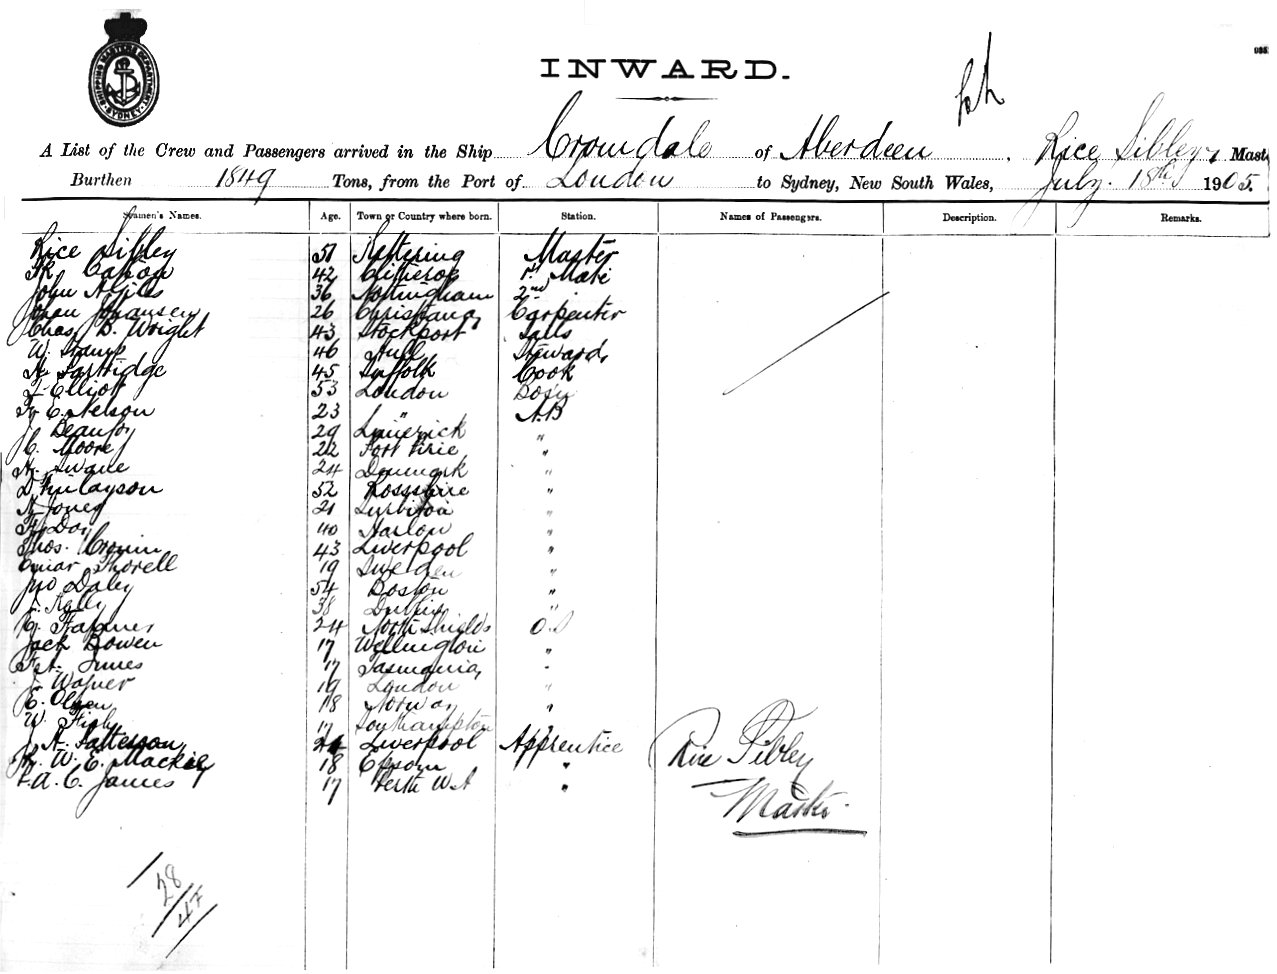 SHIPPING MASTER'S DEPARTMENT SYDNEY
INWARD.
A List of the Crew and Passengers arrived in the Ship Cromdale of Aberdeen. Rice Sibley, Mast
Burthen 1849 Tons, from the Port of London to Sydney, New South Wales, July. 18th 1905.
Seamen's Names. Age. Town or Country where born. Station. Names of Passengers. Description. Remarks.
Rice Sibley 51 Kettering Master
42 Clitheroe 1st Mate
John A Giles 36 Nottingham 2nd "
Johan Johansen 26 Christiana Carpenter
Chas. B. Wright 43 Stockport Sails
W. Stamp 46 Hull Steward
H. Partridge 45 Suffolk Cook
Elliot 53 London Bosn
E. Nelson 23 " A.B
J. Beaufoy 29 Limerick "
C. Moore 22 Port Pirie "
H. Swane 24 Denmark "
D. Finlayson 52 Rossshire "
Jones 21 Surbiton "
H. Day 40 Harlow "
Thos. Cronin 43 Liverpool "
Einar Thorell 19 Sweden "
Jno Daley 54 Boston "
J. Kelly 38 Dublin "
24 North Shields O.S
Jack Bowen 17 Wellington "
F. A. Innes 17 Tasmania "
J. Wagner 19 London "
E. Olsen 18 Norway "
W. Fish 17 Southampton
J. A. Patterson 21 Liverpool Apprentice
W. E. Mackie 18 Epsom "
A. C. James 17 Perth W.A "
Rice Sibley
Master
28
47